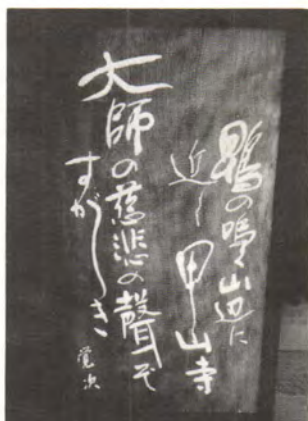 鵙の啼く山辺に
近く甲山寺
大師の慈悲の聲ぞ
すがしき
覚次